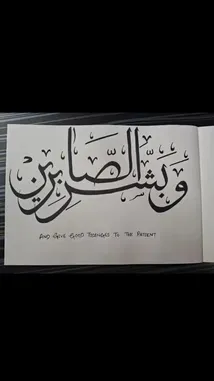 وَبَشِّرِ الصَّابِرِينَ
AND GIVE GOOD TIDINGS TO THE PATIENT